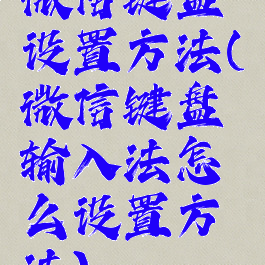 微信键盘
设置方法(
微信键盘
输入法怎
么设置方
法)